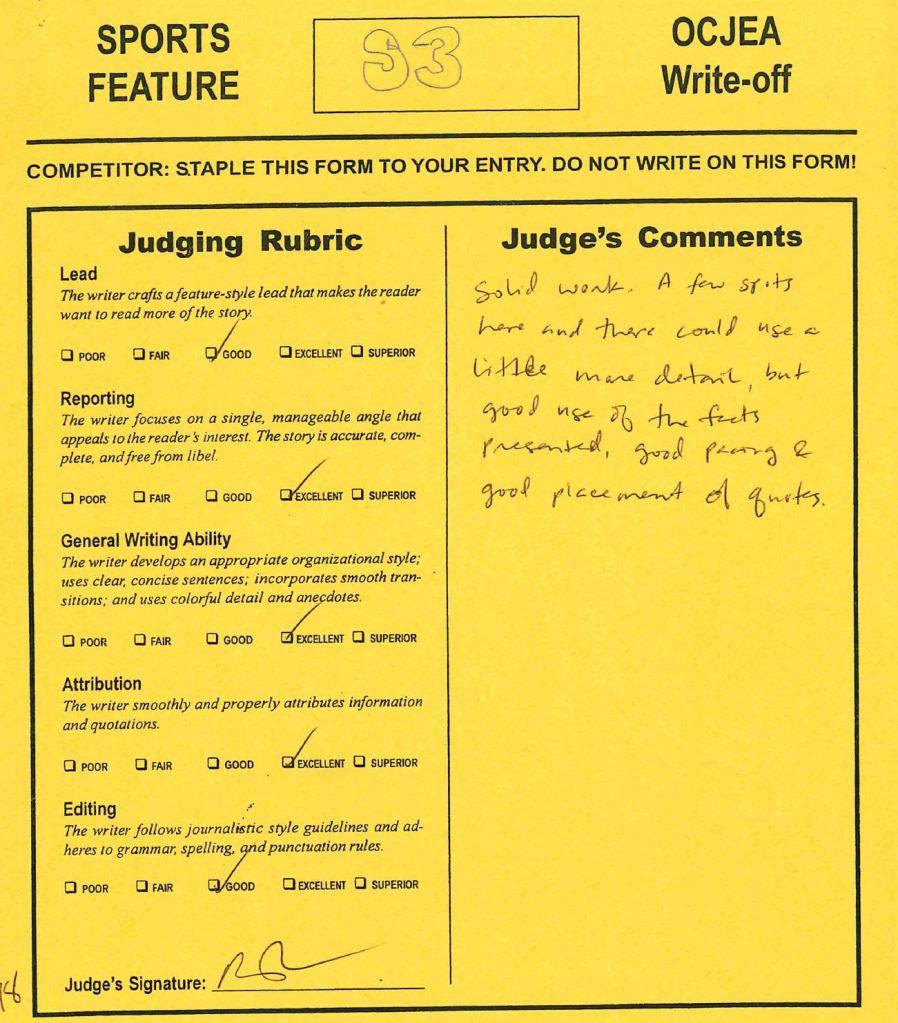 SPORTS
FEATURE
S3
OCJEA
Write-off
COMPETITOR: STAPLE THIS FORM TO YOUR ENTRY. DO NOT WRITE ON THIS FORM!
Judging Rubric
Lead
The writer crafts a feature-style lead that makes the reader
want to read more of the story.
POOR FAIR GOOD EXCELLENT SUPERIOR
Reporting
The writer focuses on a single, manageable angle that
appeals to the reader's interest. The story is accurate, com-
plete, and free from libel.
POOR FAIR GOOD EXCELLENT SUPERIOR
General Writing Ability
The writer develops an appropriate organizational style;
uses clear, concise sentences; incorporates smooth tran-
sitions; and uses colorful detail and anecdotes.
POOR FAIR GOOD EXCELLENT SUPERIOR
Attribution
The writer smoothly and properly attributes information
and quotations.
POOR FAIR GOOD EXCELLENT SUPERIOR
Editing
The writer follows journalistic style guidelines and ad-
heres to grammar, spelling, and punctuation rules.
POOR FAIR GOOD EXCELLENT SUPERIOR
Judge's Signature:
Judge's Comments
Solid work. A few spots
here and there could use a
little more detail, but
good use of the facts
presented, good pacing &
good placement of quotes.